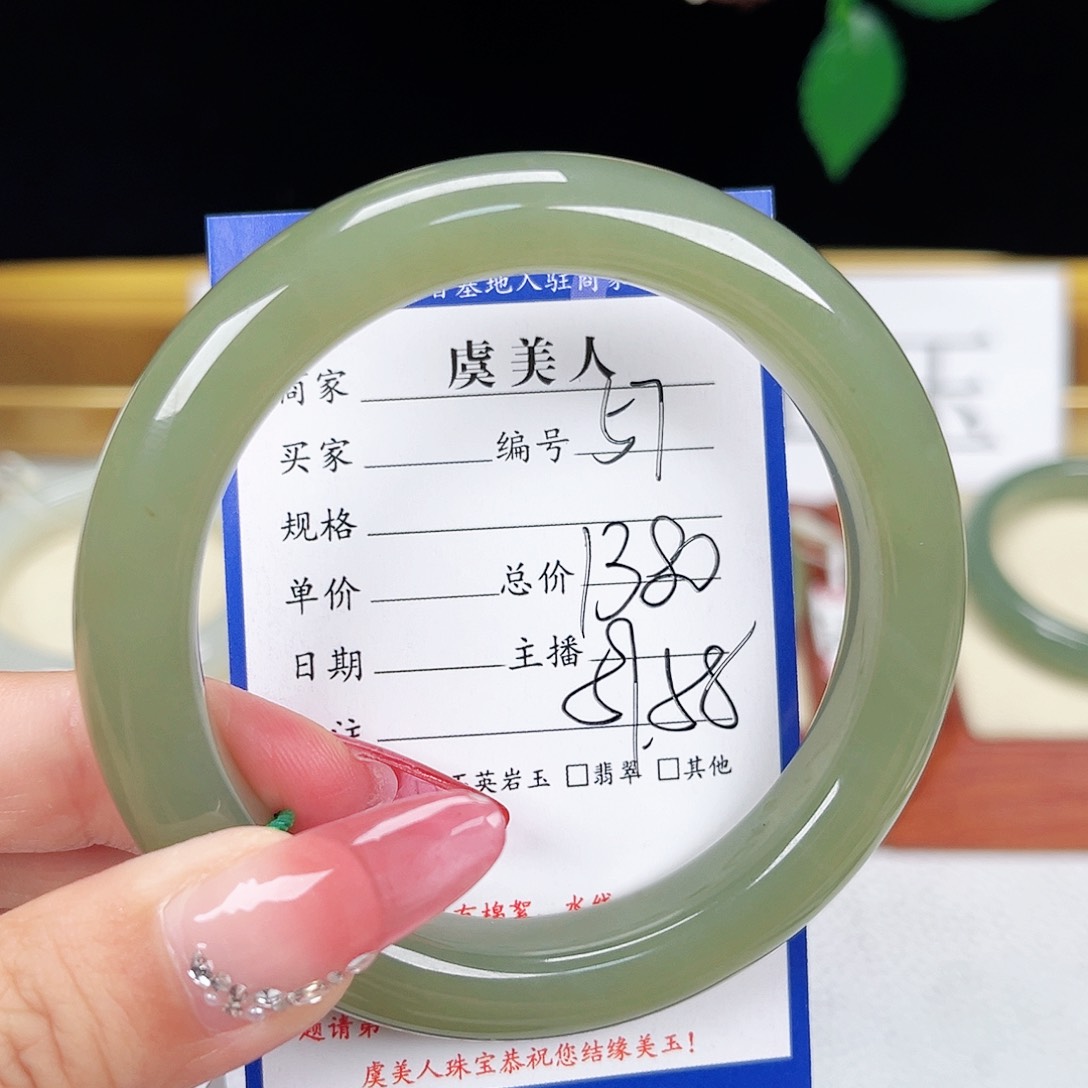 基地入驻商家
商家 虞美人
买家 编号 57
规格
单价 总价 1380
日期 主播
注
英岩玉 □翡翠 □其他
棉絮、水线
题请第
虞美人珠宝恭祝您结缘美玉！
玉